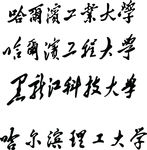 哈爾濱工業大學
哈爾濱工程大學
黑龙江科技大学
哈尔滨理工大学